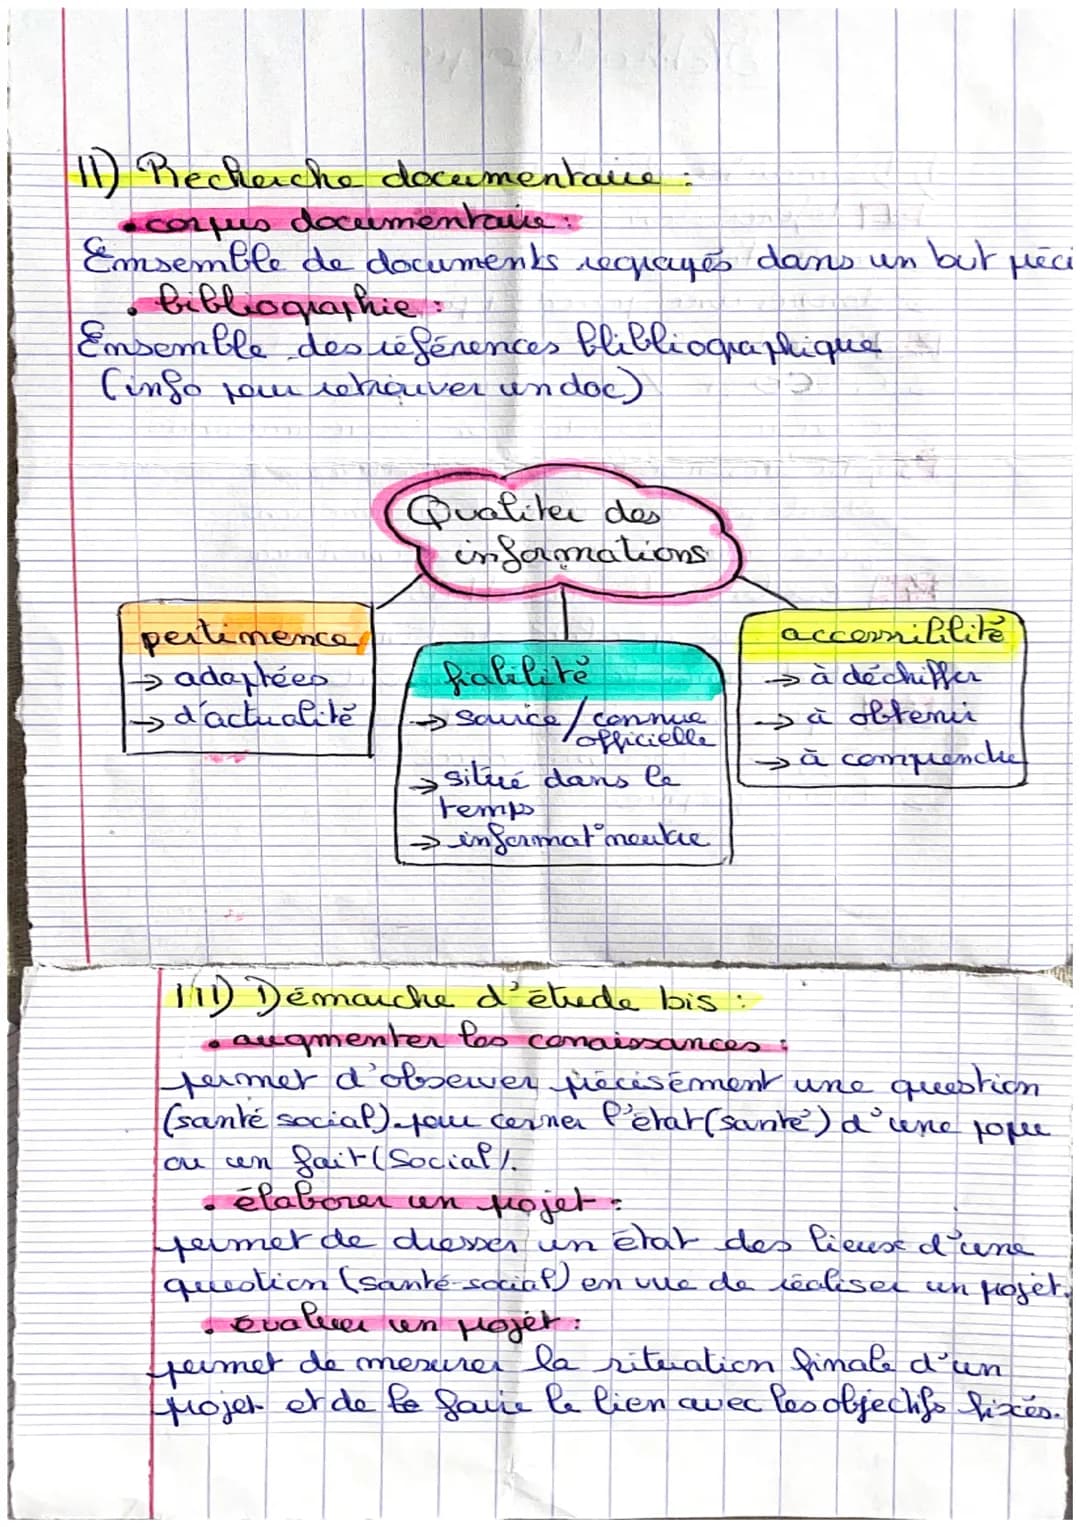 II) Recherche documentaire :
• corpus documentaire :
Emsemble de documents regrayés dans un but préci
• bibliographie :
Ensemble des références blibliographique
(info pour retrouver un doc)
Qualiter des
informations
pertinence
→ adaptées
→ d'actualité
fiabilité
→ source / connue
officielle
→ situé dans le
temps
→ informat° neutre
accessibilité
→ à déchiffer
→ à obtenir
→ à comprendre
III) Démarche d'étude bis :
• augmenter les conaissances :
permet d'observer précisément une question
(santé social) pour cerner l'état (santé) d'une popu
ou un fait (Social).
• élaborer un projet :
permet de dresser un état des lieux d'une
question (santé-social) en vue de réaliser un projet.
• évaluer un projet :
permet de mesurer la situation finale d'un
projet et de le faire le lien avec les objectifs fixés.